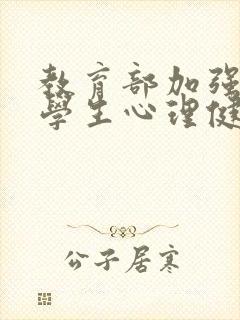 教育部加强
學生心理健
公子居寒